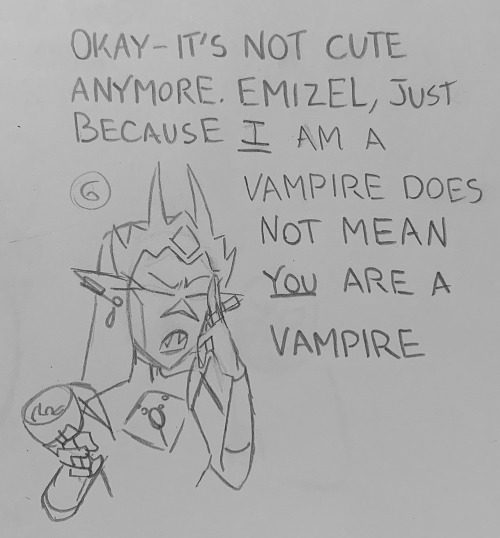 OKAY-IT'S NOT CUTE
ANYMORE. EMIZEL, JUST
BECAUSE I AM A
6
VAMPIRE DOES
NOT MEAN
YOU ARE A
VAMPIRE